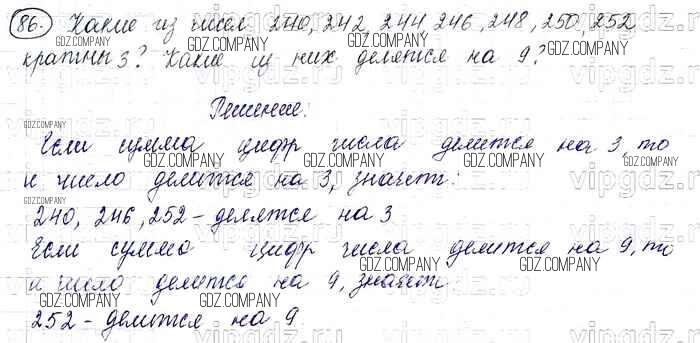 86. Какие из чисел 240, 242 244 246, 248, 250, 252
кратны 3? Какие из них делятся на 9?
Решение:
Если сумма цифр числа делится на 3 то
и число делится на 3, значит:
240, 246, 252 - делятся на 3
Если сумма цифр числа делится на 9, то
и число делится на 9, значит
252 - делится на 9